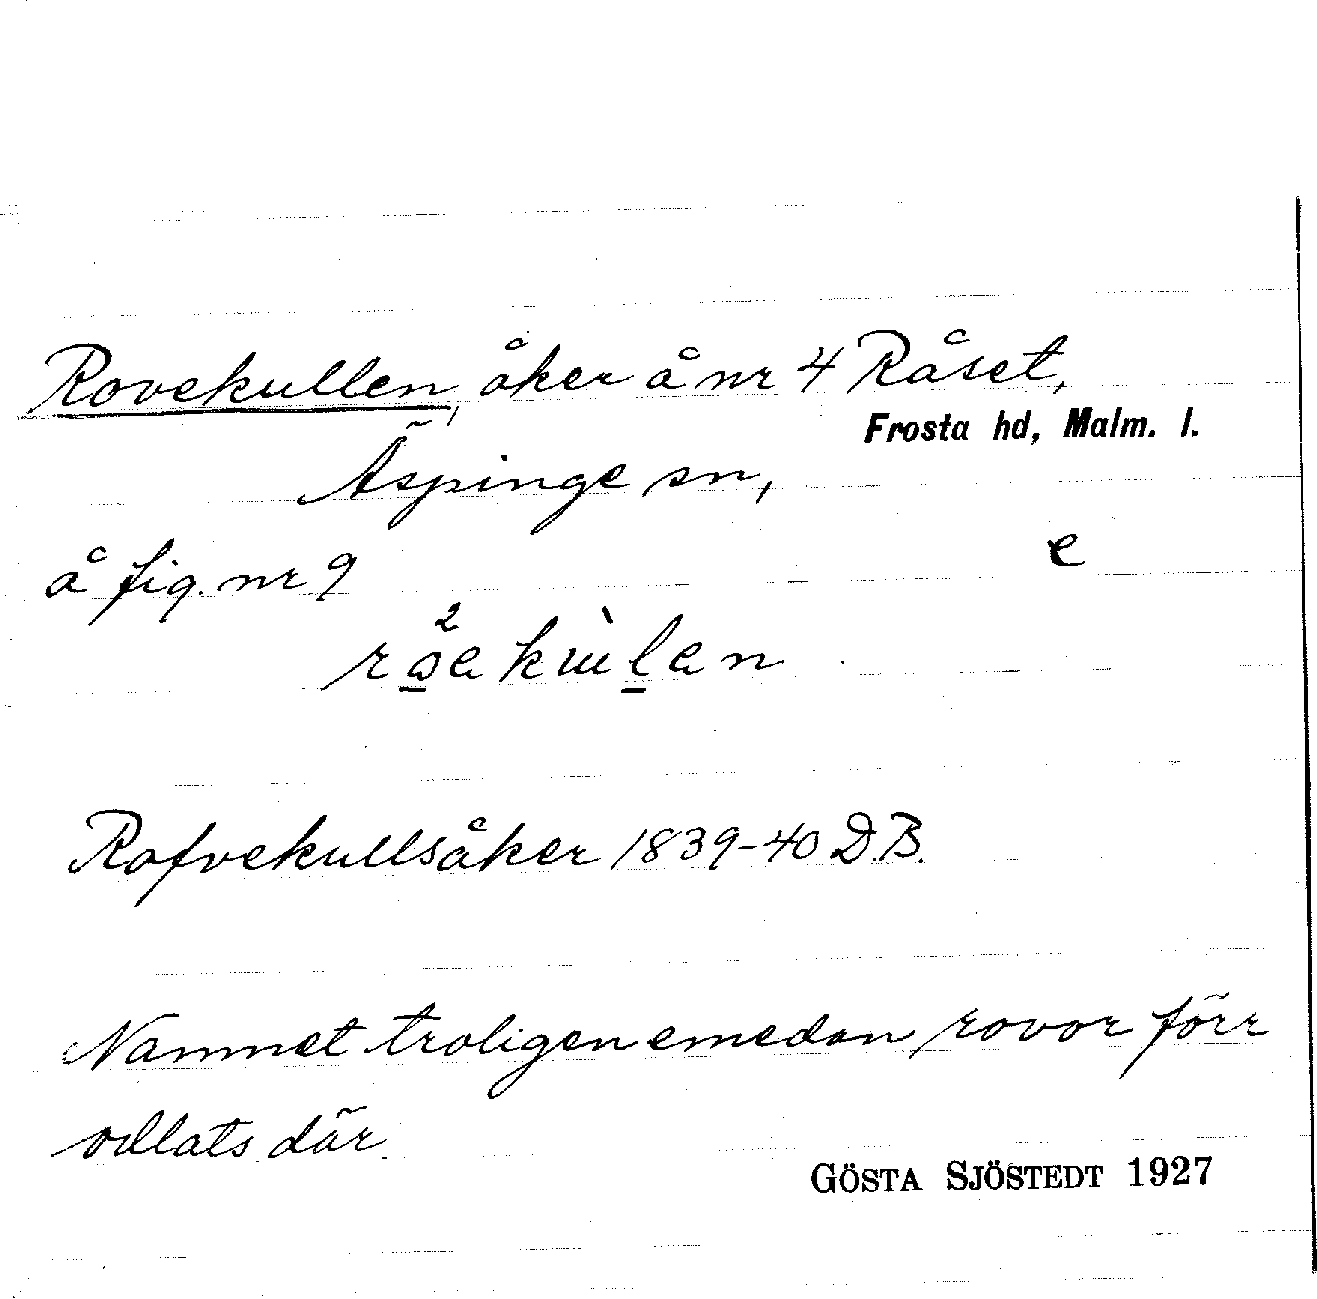 Rovekullen, åker å nr 4 Råset,
Frosta hd, Malm. l.
Äspinge sn,
e
å fig. nr 9
Rofvekullsåker 1839-40 D.B.
Namnet troligen emedan rovor förr
odlats där.
GÖSTA SJÖSTEDT 1927